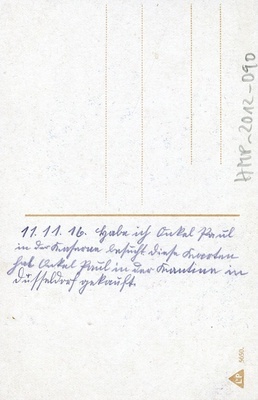 HMP-2012-090
11.11.16. Habe ich Onkel Paul
in der Kaserne besucht diese Karten
hat Onkel Paul in der Kantine in
Düsseldorf gekauft.
EP